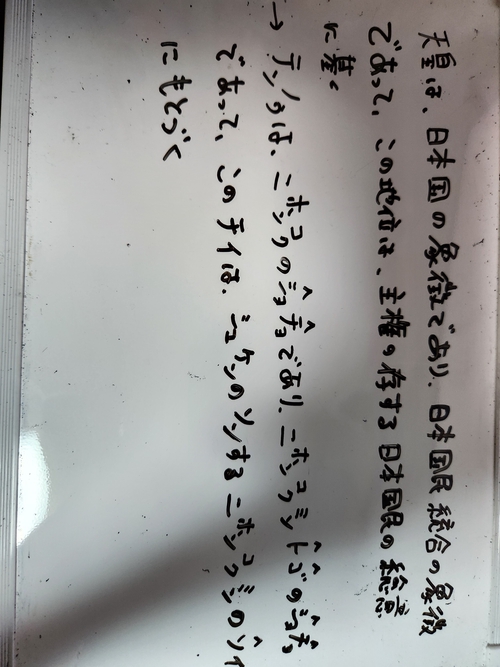 天皇は、日本国の象徴であり、日本国民統合の象徴
であって、この地位は、主権の存する日本国民の総意
に基く
→ テンノは、ニホンコクのショチョであり、ニホンコクミントゴのショチョ
であって、このチイは、シュケンのソンするニホンコクミンのソイ
にもとづく